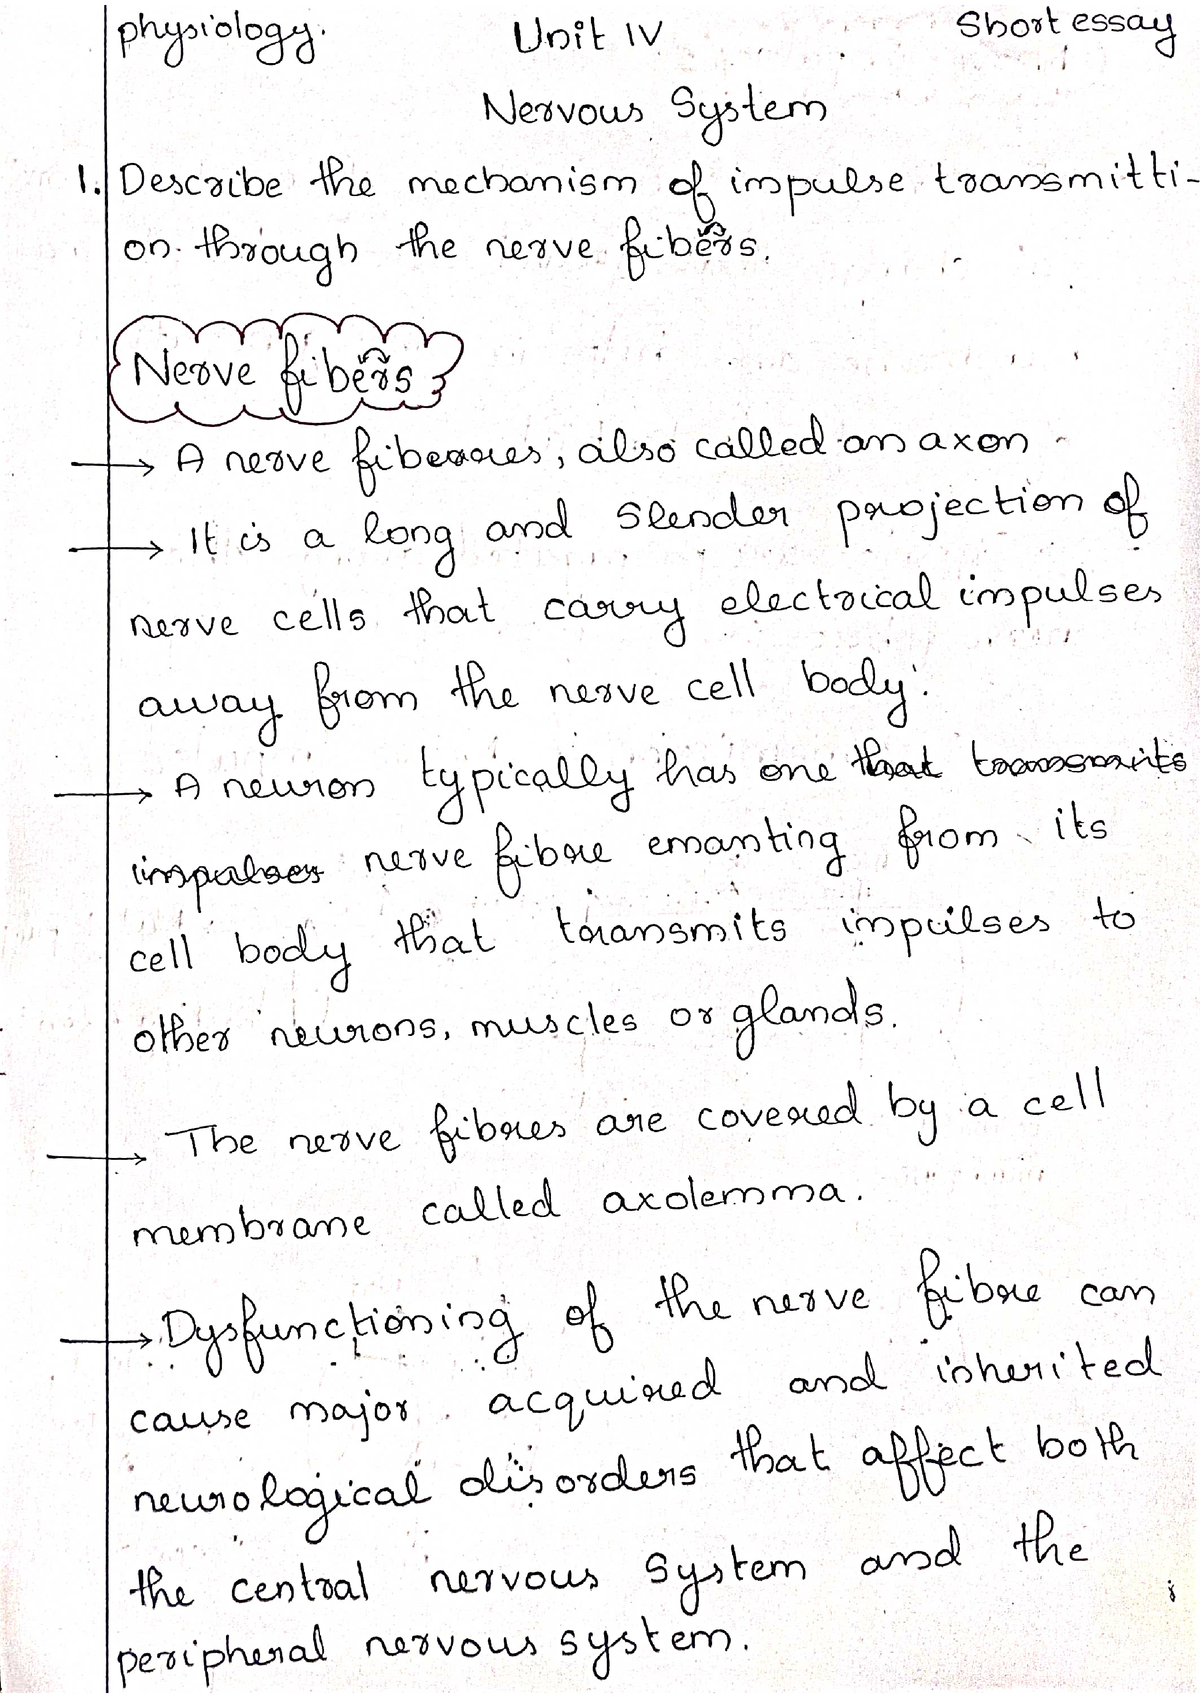 physiology. Unit IV Short essay
Nervous System
1. Describe the mechanism of impulse transmitti-
on through the nerve fibers.
Nerve fibers
→ A nerve fiberres, also called an axon
→ It is a long and slender projection of
nerve cells that carry electrical impulses
away from the nerve cell body.
→ A neuron typically has one that transmits
impulses nerve fibre emanting from its
cell body that transmits impulses to
other neurons, muscles or glands.
→ The nerve fibres are covered by a cell
membrane called axolemma.
→ Dysfunctioning of the nerve fibre can
cause major acquired and inherited
neurological disorders that affect both
the central nervous system and the
peripheral nervous system.